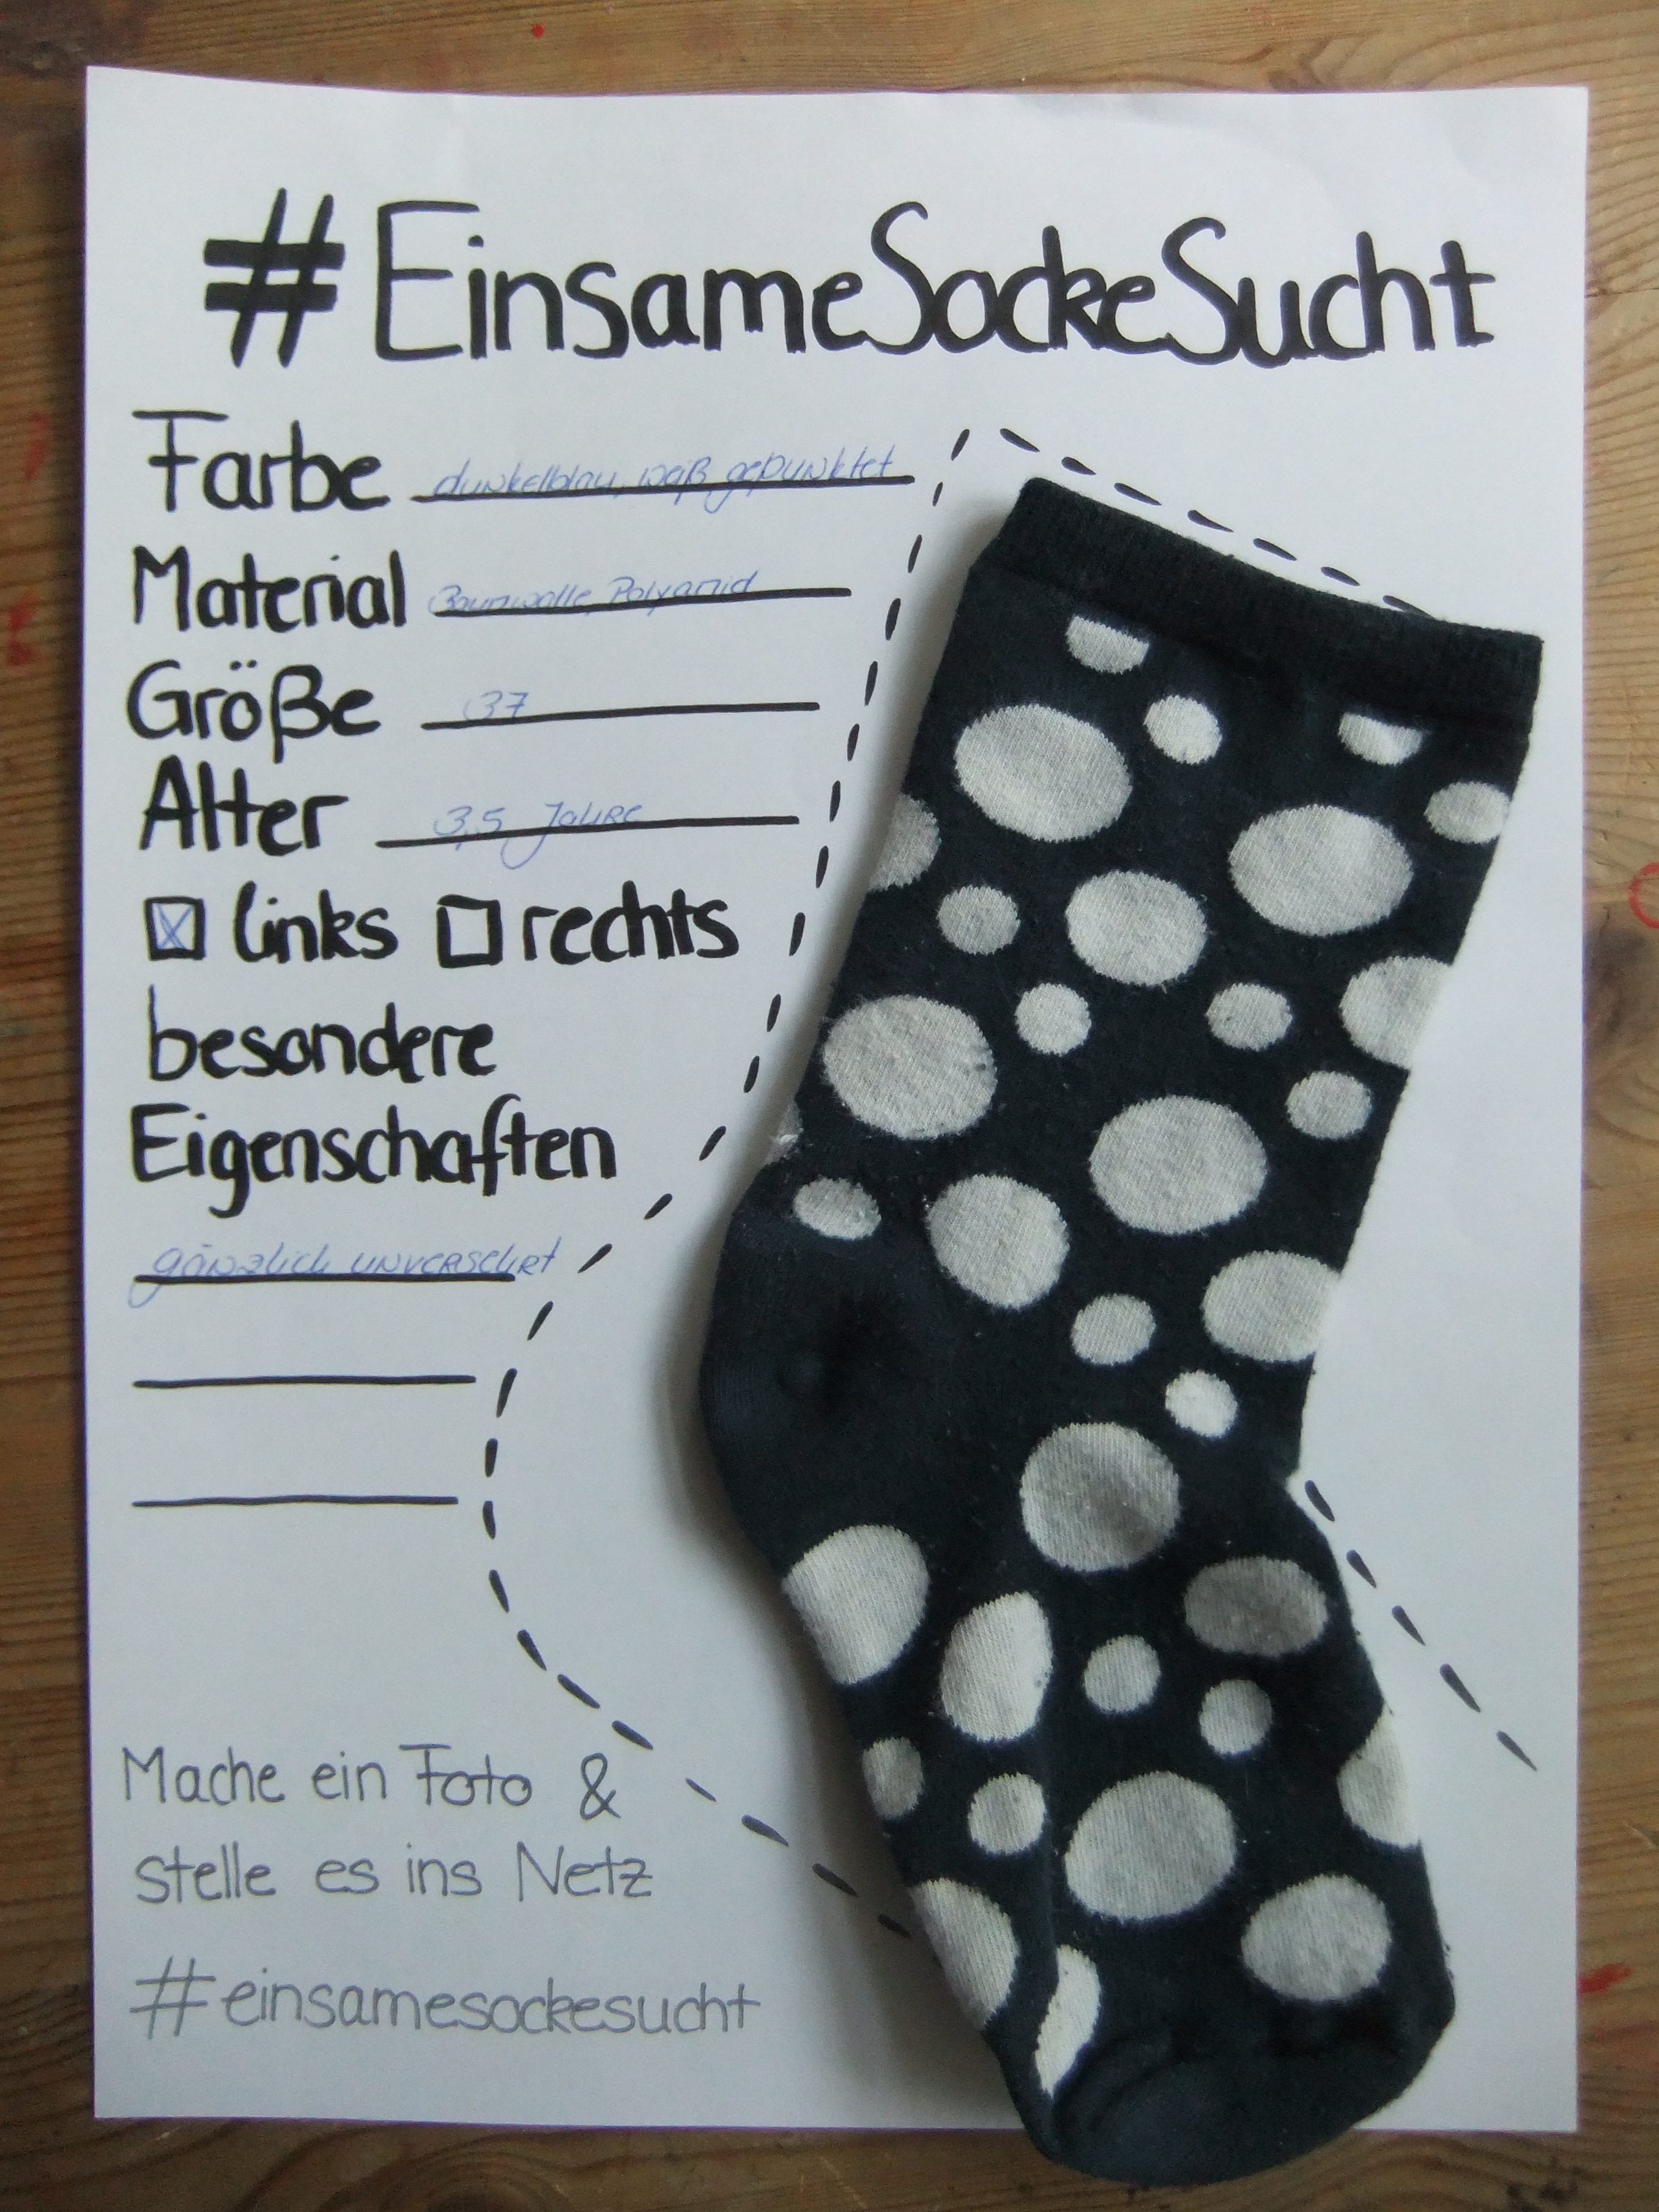 #EinsameSockeSucht
Farbe dunkelblau, weiß gepunktet
Material Baumwolle, Polyamid
Größe 37
Alter 3,5 Jahre
☒ links ☐ rechts
besondere
Eigenschaften
gänzlich unversehrt
Mache ein Foto &
stelle es ins Netz
#einsamesockesucht